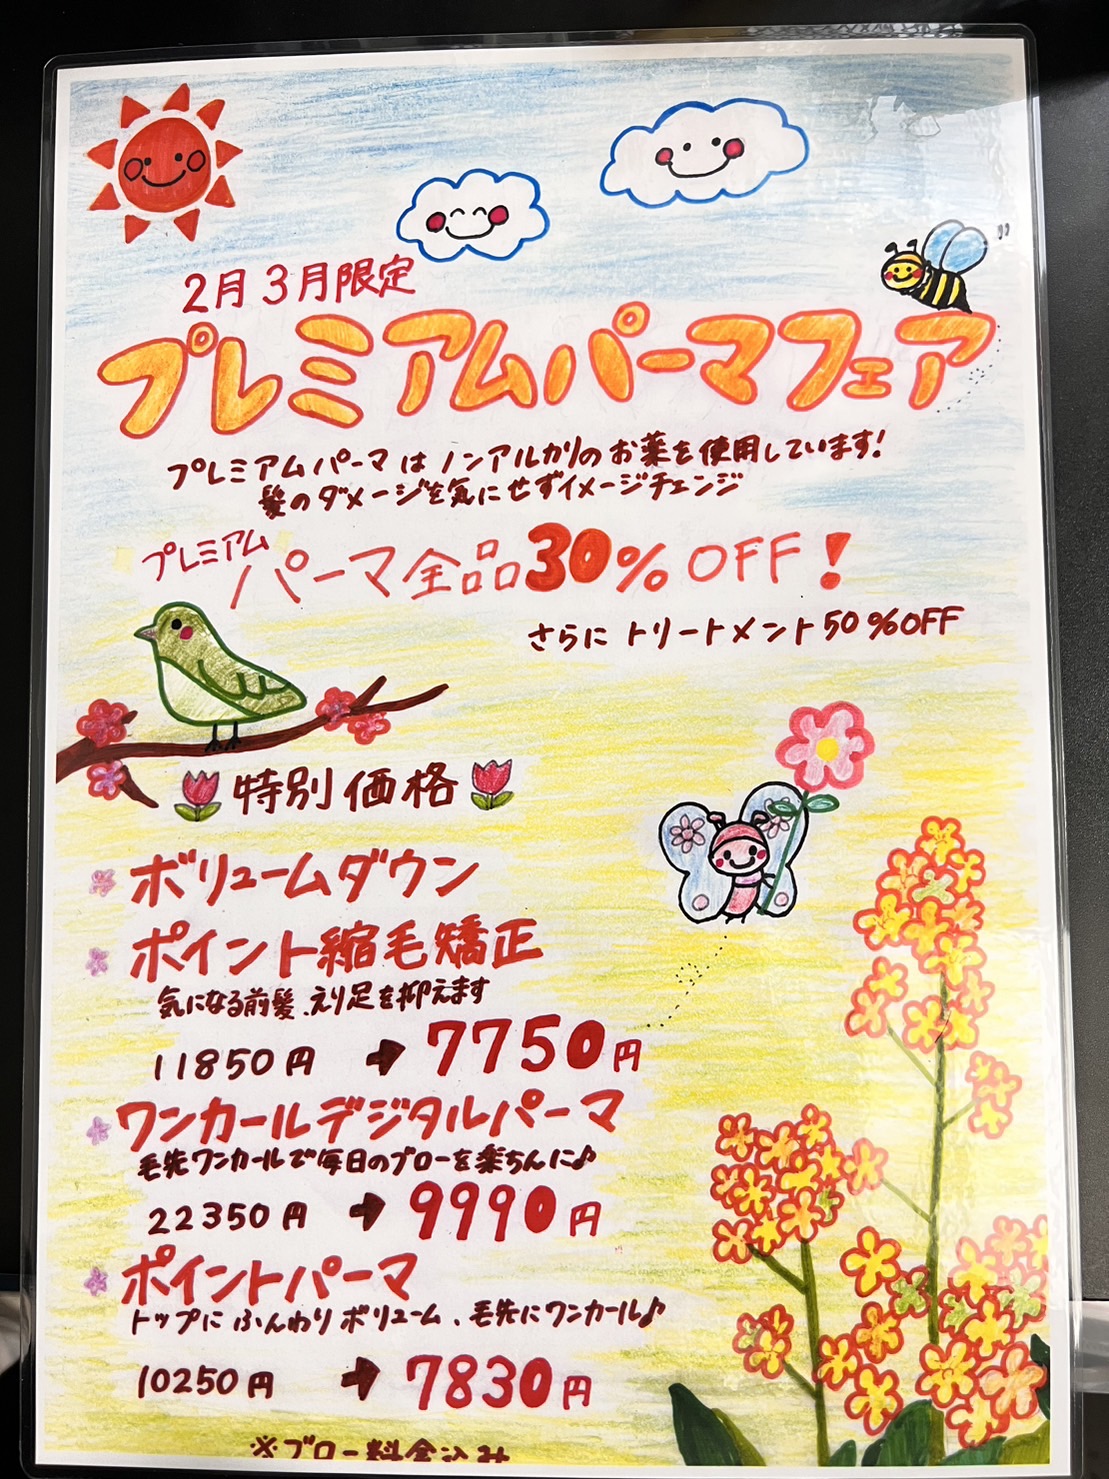 2月3月限定
プレミアムパーマフェア
プレミアムパーマはノンアルカリのお薬を使用しています!
髪のダメージを気にせずイメージチェンジ
プレミアム
パーマ全品30%OFF!
さらにトリートメント50%OFF
特別価格
ボリュームダウン
ポイント縮毛矯正
気になる前髪、えり足を抑えます
11850円 → 7750円
ワンカールデジタルパーマ
毛先ワンカールで毎日のブローを楽ちんに♪
22350円 → 9990円
ポイントパーマ
トップにふんわりボリューム、毛先にワンカール♪
10250円 → 7830円
※ブロー料金込み